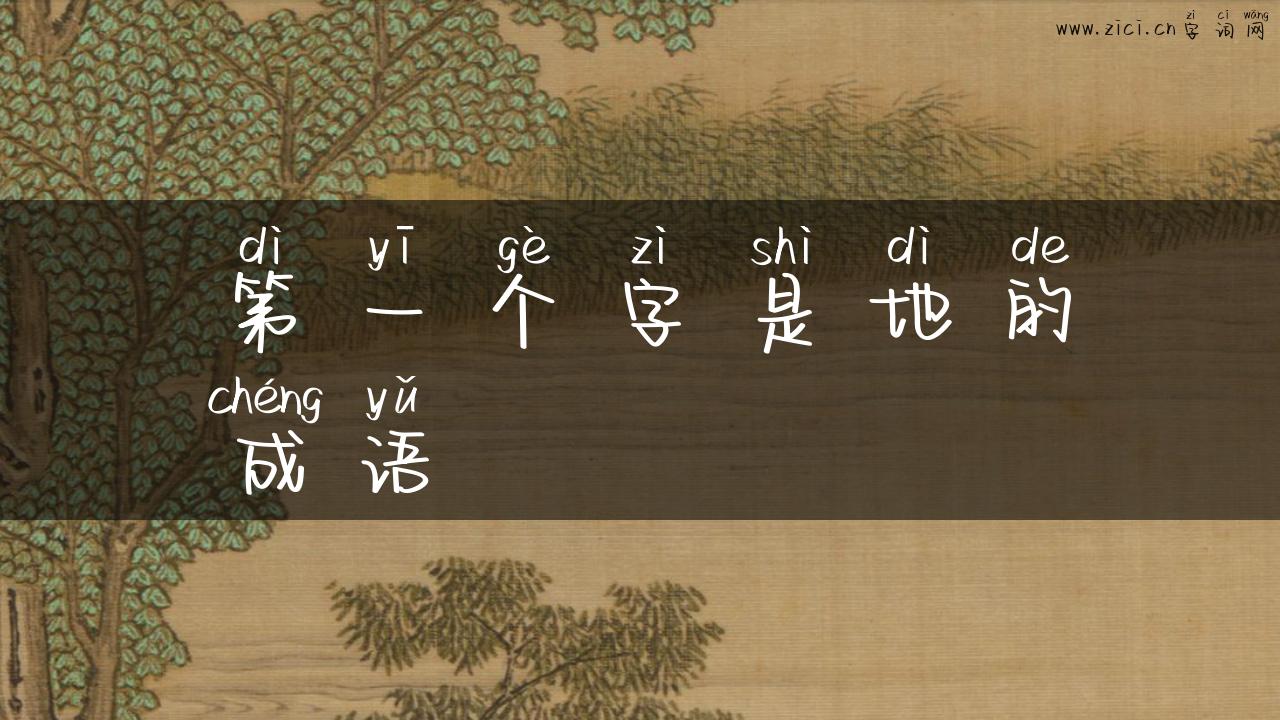 zì cí wǎng
www.zici.cn 字词网
dì yī gè zì shì dì de
第一个字是地的
chéng yǔ
成语